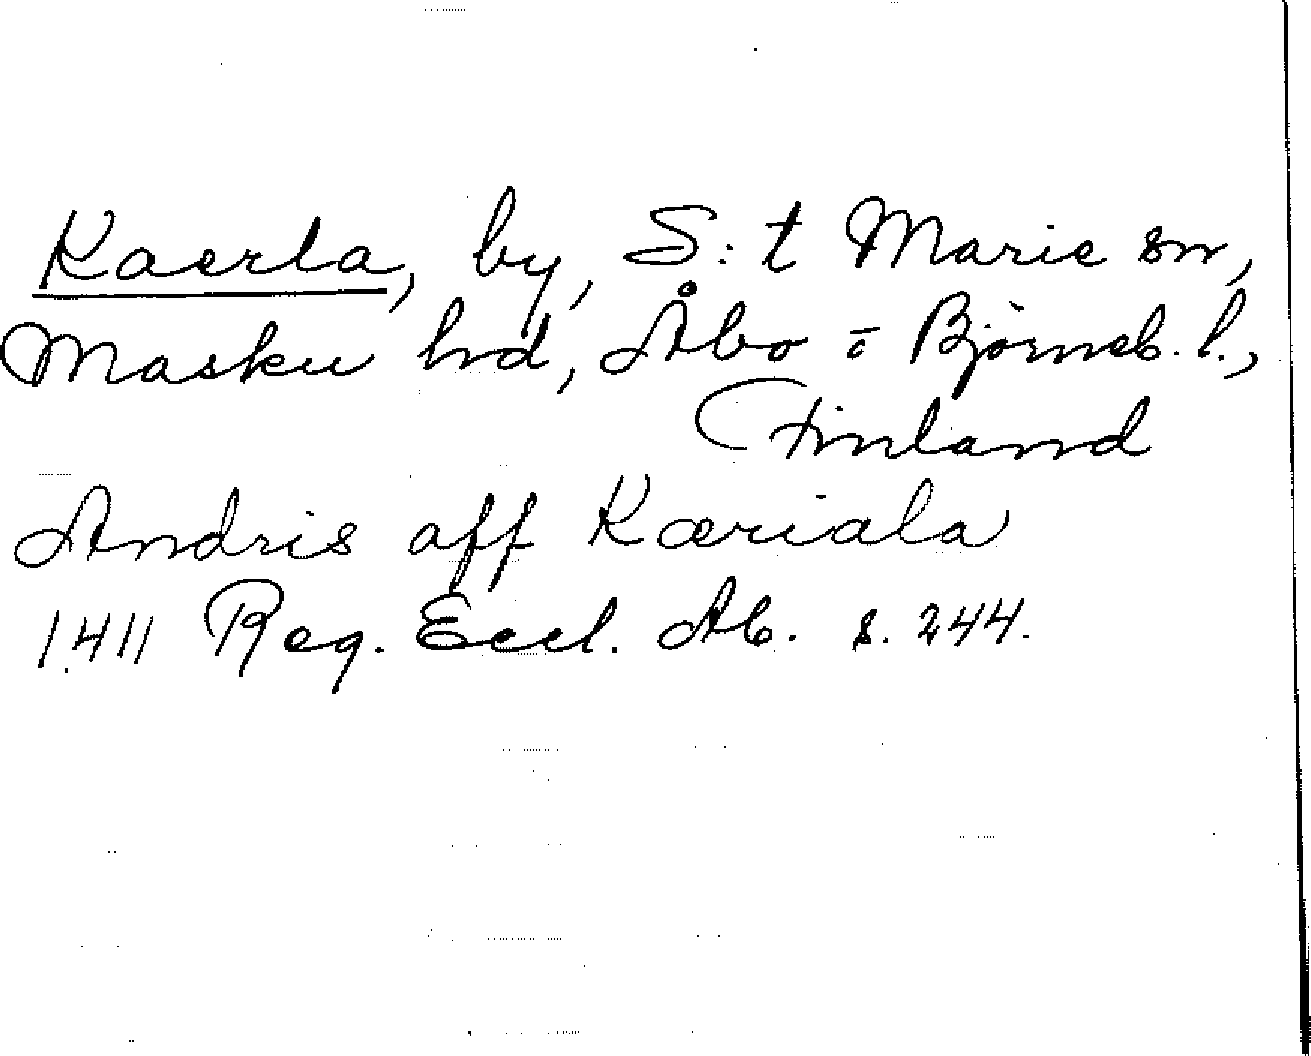 Kaerla, by, S:t Marie sn,
Masku hd, Åbo - Björneb. l.,
Finland
Andris aff Kæriala
1411 Reg. Eccl. Ab. s. 244.